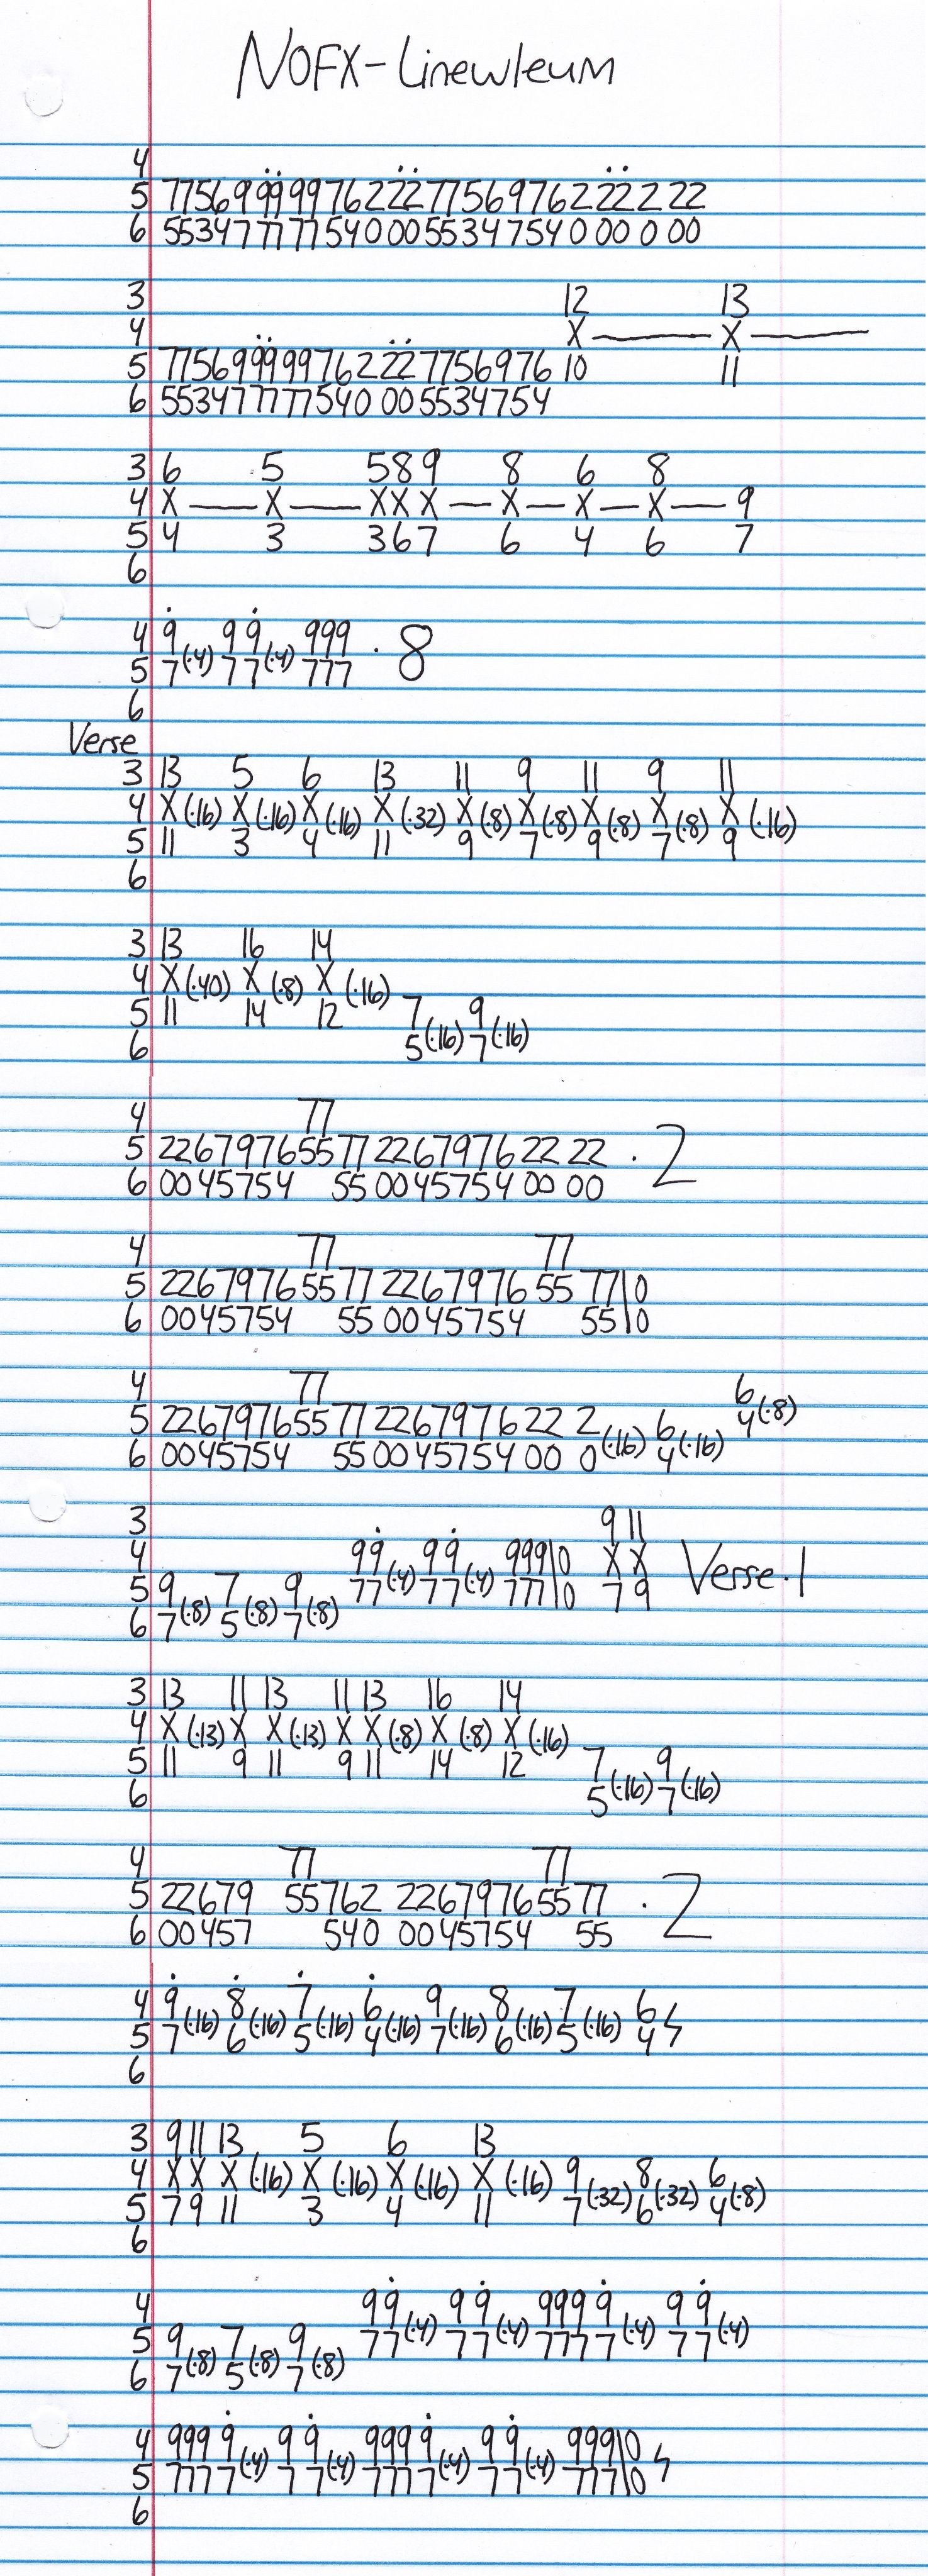 NOFX - Linewleum
4
5 7756999999762222775697622222 22
6 553477777540 005534754 0 00 0 00
3 12 13
4 X — X —
5 7756999999762 22775697610 11
6 5534777775 40 005534754
3 6 5 5 8 9 8 6 8
4 X — X — X X X — X — X — X — 9
5 4 3 3 6 7 6 4 6 7
6
4 9 9 9 999
5 7 (·4) 7 7 (·4) 777 · 8
6
Verse
3 13 5 6 13 11 9 11 9 11
4 X (·16) X (·16) X (·16) X (·32) X (·8) X (·8) X (·8) X (·8) X (·16)
5 11 3 4 11 9 7 9 7 9
6
3 13 16 14
4 X (·40) X (·8) X (·16)
5 11 14 12 7 9
6 5 (·16) 7 (·16)
4 77
5 2267976 55 77 2267976 22 22 · 2
6 0045754 55 0045754 00 00
4 77 77
5 2267976 55 77 2267976 55 77|0
6 0045754 55 0045754 55|0
4 77 6
5 2267976 55 77 2267976 22 2 6 4 (·8)
6 0045754 55 0045754 00 0 (·16) 4 (·16)
3 9 11
4 99 99 999|0 X X Verse · 1
5 9 7 9 77 (·4) 77 (·4) 777|0 7 9
6 7 (·8) 5 (·8) 7 (·8)
3 13 11 13 11 13 16 14
4 X (·13) X X (·13) X X (·8) X (·8) X (·16)
5 11 9 11 9 11 14 12 7 9
6 5 (·16) 7 (·16)
4 77 77
5 22679 55 762 2267976 55 77 · 2
6 00457 540 0045754 55
4 9 8 7 6 9 8 7 6
5 7 (·16) 6 (·16) 5 (·16) 4 (·16) 7 (·16) 6 (·16) 5 (·16) 4
6
3 9 11 13 5 6 13
4 X X X (·16) X (·16) X (·16) X (·16) 9 8 6
5 7 9 11 3 4 11 7 (·32) 6 (·32) 4 (·8)
6
4 99 99 9999 99
5 9 7 9 77 (·4) 77 (·4) 7777 (·4) 77 (·4)
6 7 (·8) 5 (·8) 7 (·8)
4 9999 99 9999 99 999|0
5 7777 (·4) 77 (·4) 7777 (·4) 77 (·4) 777|0
6